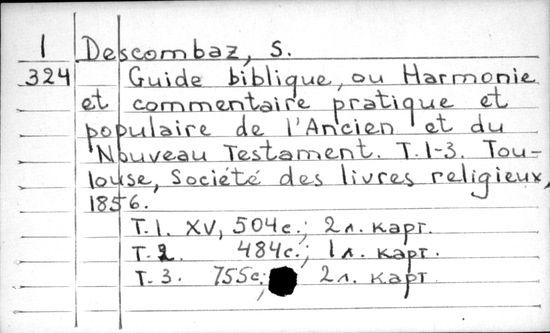 1 Descombaz, S.
324 Guide biblique, ou Harmonie
et commentaire pratique et
populaire de l'Ancien et du
Nouveau Testament. T.1-3. Tou-
louse, Société des livres religieux,
1856.
T.1. XV, 504с.; 2л. карт.
T.2. 484с.; 1л. карт.
T.3. 755с.; 2л. карт.